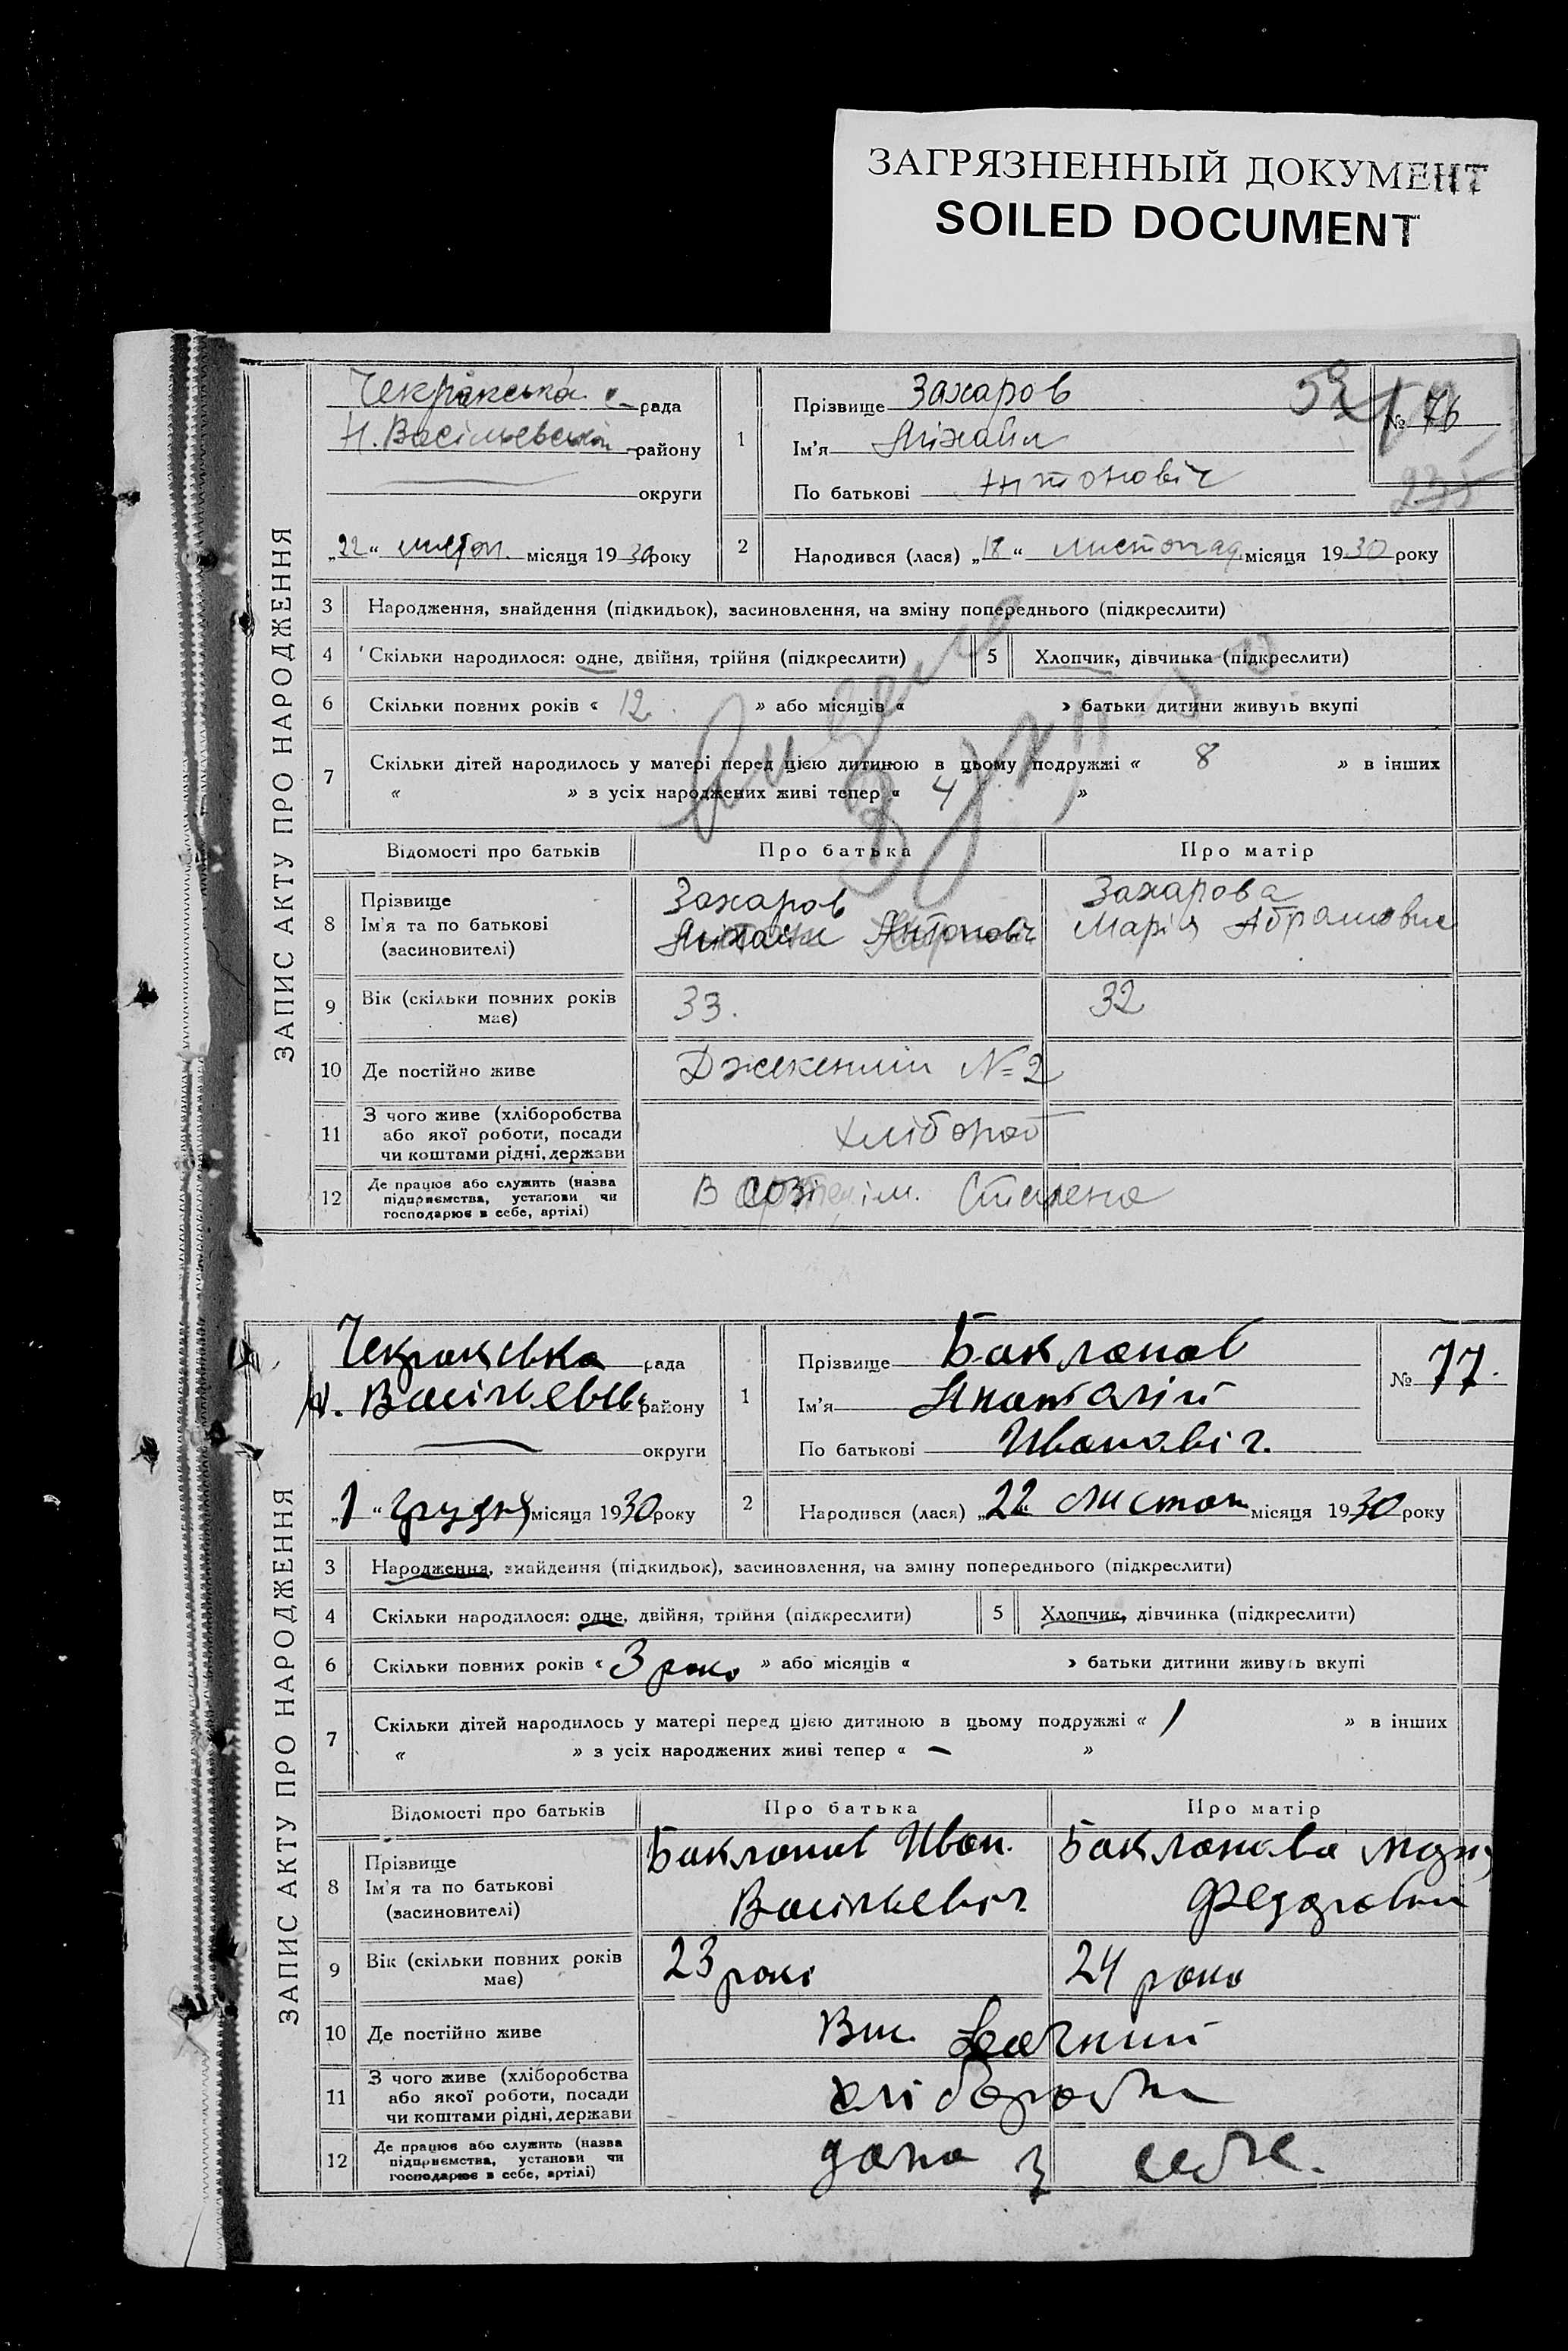 ЗАГРЯЗНЕННЫЙ ДОКУМЕНТ
SOILED DOCUMENT
ЗАПИС АКТУ ПРО НАРОДЖЕННЯ
Чекракська с рада
Н. Васільевській району
округи
„22“ листоп. місяця 1930 року
1
Прізвище Захаров
Ім'я Міхаіл
По батькові Антоновіч
№ 76
235
2
Народився (лася) „18“ листопад місяця 1930 року
3 Народження, знайдення (підкидьок), засиновлення, на зміну попереднього (підкреслити)
4 Скільки народилося: одне, двійня, трійня (підкреслити) 5 Хлопчик, дівчинка (підкреслити)
6 Скільки повних років « 12 » або місяців « » батьки дитини живуть вкупі
7 Скільки дітей народилось у матері перед цією дитиною в цьому подружжі « 8 » в інших
« » з усіх народжених живі тепер « 4 »
Відомості про батьків Про батька Про матір
8 Прізвище
Ім'я та по батькові
(засиновителі)
Захаров
Захарова
Марія Абрамовна
9 Вік (скільки повних років
має)
33. 32
10 Де постійно живе № 2
11 З чого живе (хліборобства
або якої роботи, посади
чи коштами рідні, держави
хлібороб
12 Де працює або служить (назва
підприємства, установи чи
господарює в себе, артілі)
В созі ім. Сталена
ЗАПИС АКТУ ПРО НАРОДЖЕННЯ
Чекракська рада
Н. Васільевськ району
округи
„1“ Грудня місяця 1930 року
1
Прізвище Бакланов
Ім'я Анаталій
По батькові Иванавіч.
№ 77.
2
Народився (лася) „22“ листоп місяця 1930 року
3 Народження, знайдення (підкидьок), засиновлення, на зміну попереднього (підкреслити)
4 Скільки народилося: одне, двійня, трійня (підкреслити) 5 Хлопчик, дівчинка (підкреслити)
6 Скільки повних років « 3 рока » або місяців « » батьки дитини живуть вкупі
7 Скільки дітей народилось у матері перед цією дитиною в цьому подружжі « 1 » в інших
« » з усіх народжених живі тепер « – »
Відомості про батьків Про батька Про матір
8 Прізвище
Ім'я та по батькові
(засиновителі)
Бакланов Иван.
Васільевіч
Бакланова
Федаровна
9 Вік (скільки повних років
має)
23 рокі 24 рока
10 Де постійно живе
11 З чого живе (хліборобства
або якої роботи, посади
чи коштами рідні, держави
12 Де працює або служить (назва
підприємства, установи чи
господарює в себе, артілі)
дома у себе.